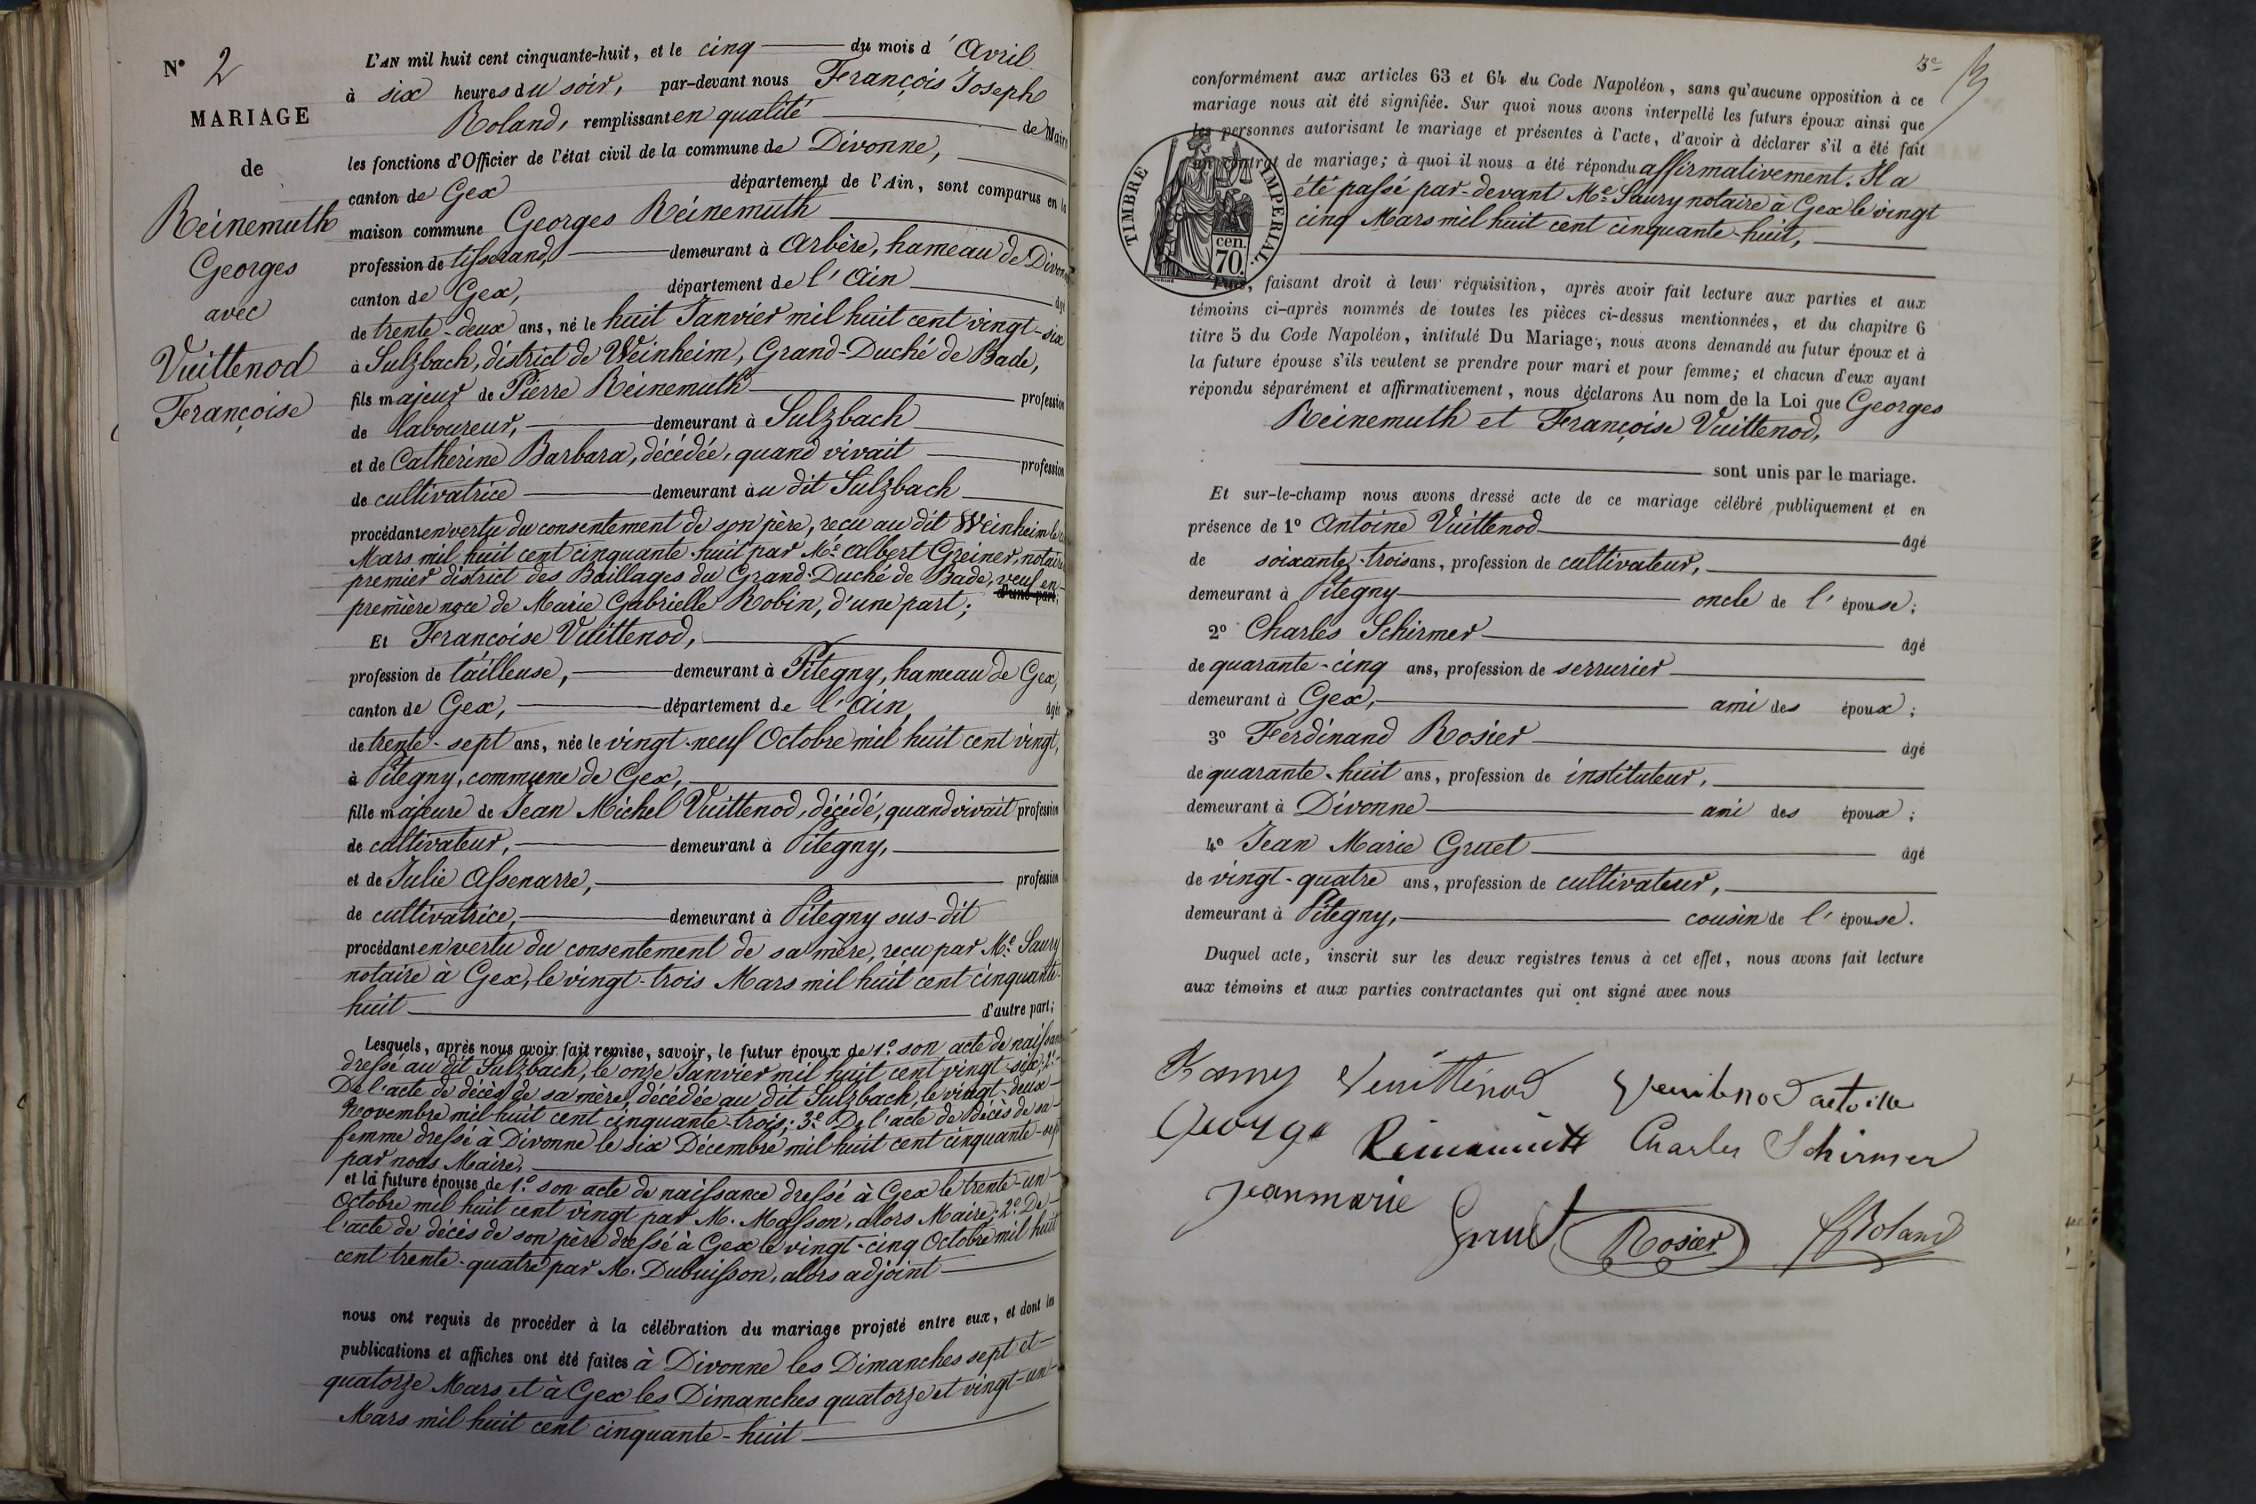 N° 2
MARIAGE
de
Reinemuth
Georges
avec
Vuittenod
Françoise
L'AN mil huit cent cinquante-huit, et le cinq du mois d'Avril
à six heures du soir, par-devant nous François Joseph
Roland, remplissant en qualité de Maire
les fonctions d'Officier de l'état civil de la commune de Divonne,
canton de Gex département de l'Ain, sont comparus en la
maison commune Georges Reinemuth
profession de tisserand, demeurant à Arbère, hameau de Divonne
canton de Gex, département de l'Ain âgé
de trente-deux ans, né le huit Janvier mil huit cent vingt-six
à Sulzbach, district de Weinheim, Grand-Duché de Bade,
fils majeur de Pierre Reinemuth profession
de laboureur, demeurant à Sulzbach
et de Catherine Barbara, décédée, quand vivait profession
de cultivatrice demeurant au dit Sulzbach
procédant en vertu du consentement de son père, reçu au dit Weinheim le
Mars mil huit cent cinquante-huit par Me Albert Greiner, notaire
premier district des Baillages du Grand-Duché de Bade, veuf en
première noce de Marie Gabrielle Robin, d'une part; d'une part,
Et Françoise Vuittenod,
profession de tailleuse, demeurant à Pitegny, hameau de Gex,
canton de Gex, département de l'Ain, âgée
de trente-sept ans, née le vingt-neuf Octobre mil huit cent vingt,
à Pitegny, commune de Gex,
fille majeure de Jean Michel Vuittenod, décédé, quand vivait profession
de cultivateur, demeurant à Pitegny,
et de Julie Assenarre, profession
de cultivatrice, demeurant à Pitegny sus-dit
procédant en vertu du consentement de sa mère, reçu par Me Saury
notaire à Gex, le vingt-trois Mars mil huit cent cinquante-
huit d'autre part;
Lesquels, après nous avoir fait remise, savoir, le futur époux de 1° son acte de naissance
dressé au dit Sulzbach, le onze Janvier mil huit cent vingt-six; 2°
De l'acte de décès de sa mère, décédée au dit Sulzbach, le vingt-deux
Novembre mil huit cent cinquante-trois; 3° De l'acte de décès de sa
femme dressé à Divonne le six Décembre mil huit cent cinquante-sept
par nous Maire,
et la future épouse de 1° son acte de naissance dressé à Gex le trente-un
Octobre mil huit cent vingt par M. Masson, alors Maire; 2° De
l'acte de décès de son père dressé à Gex le vingt-cinq Octobre mil huit
cent trente-quatre par M. Dubuisson, alors adjoint
nous ont requis de procéder à la célébration du mariage projeté entre eux, et dont les
publications et affiches ont été faites à Divonne les Dimanches sept et
quatorze Mars et à Gex les Dimanches quatorze et vingt-un
Mars mil huit cent cinquante-huit
3e
conformément aux articles 63 et 64 du Code Napoléon, sans qu'aucune opposition à ce
mariage nous ait été signifiée. Sur quoi nous avons interpellé les futurs époux ainsi que
les personnes autorisant le mariage et présentes à l'acte, d'avoir à déclarer s'il a été fait
un contrat de mariage; à quoi il nous a été répondu affirmativement. Il a
été passé par-devant Me Saury notaire à Gex le vingt
cinq Mars mil huit cent cinquante-huit,
TIMBRE IMPERIAL.
cen.
70.
Puis, faisant droit à leur réquisition, après avoir fait lecture aux parties et aux
témoins ci-après nommés de toutes les pièces ci-dessus mentionnées, et du chapitre 6
titre 5 du Code Napoléon, intitulé Du Mariage, nous avons demandé au futur époux et à
la future épouse s'ils veulent se prendre pour mari et pour femme; et chacun d'eux ayant
répondu séparément et affirmativement, nous déclarons Au nom de la Loi que Georges
Reinemuth et Françoise Vuittenod,
sont unis par le mariage.
Et sur-le-champ nous avons dressé acte de ce mariage célébré publiquement et en
présence de 1° Antoine Vuittenod âgé
de soixante-trois ans, profession de cultivateur,
demeurant à Pitegny oncle de l'épouse;
2° Charles Schirmer âgé
de quarante-cinq ans, profession de serrurier
demeurant à Gex, ami des époux;
3° Ferdinand Rosier âgé
de quarante-huit ans, profession de instituteur,
demeurant à Divonne ami des époux;
4° Jean Marie Gruet âgé
de vingt-quatre ans, profession de cultivateur,
demeurant à Pitegny, cousin de l'épouse.
Duquel acte, inscrit sur les deux registres tenus à cet effet, nous avons fait lecture
aux témoins et aux parties contractantes qui ont signé avec nous
Vuitténod
George Charles Schirmer
jeanmarie
Gruet Rosier Roland